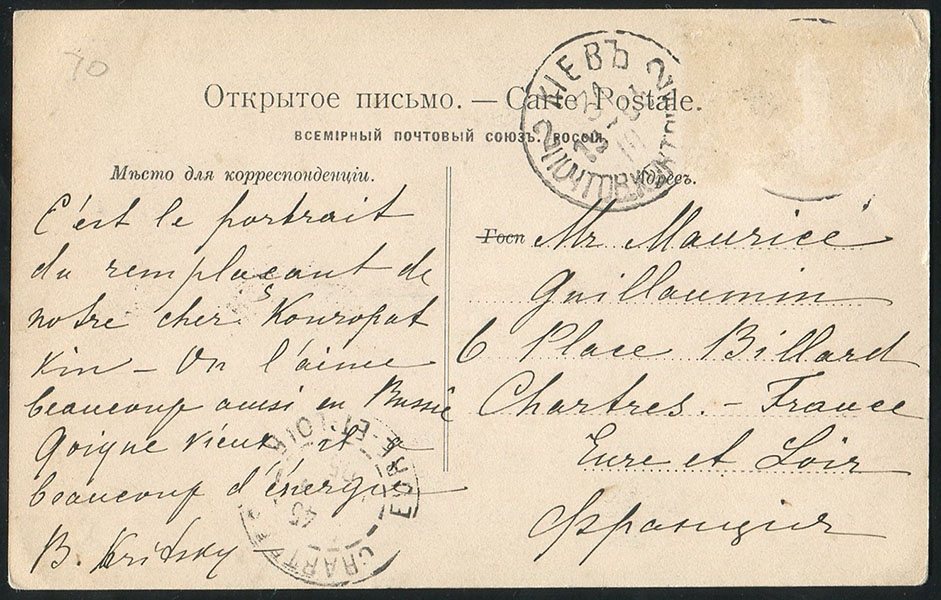 70
Открытое письмо. — Carte Postale.
ВСЕМІРНЫЙ ПОЧТОВЫЙ СОЮЗЪ. РОССІЯ.
КІЕВЪ 2
2 ПОЧТОВ. КОНТ
Мѣсто для корреспонденціи.
Адресъ.
C'est le portrait
du remplaçant de
notre cher Kouropat
kin — On l'aime
beaucoup aussi en Russie
Quoique vieux il a
beaucoup d'énergie
B. Kritsky
Госп Mr Maurice
Guillaumin
6 Place Billard
Chartres. — France
Eure et Loir
Франция
CHARTRES
EURE-ET-LOIR